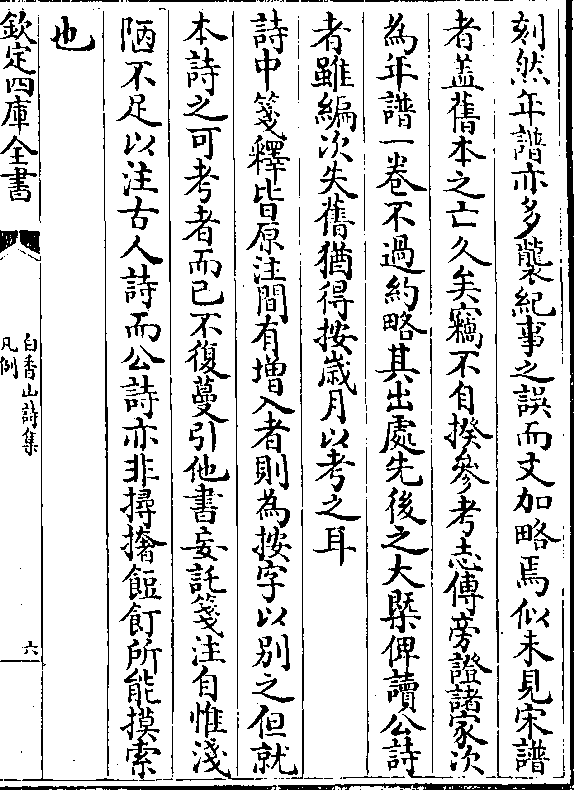 刻然年譜亦多襲紀事之誤而文加略焉似未見宋譜
者盖舊本之亡久矣竊不自揆參考志傳旁證諸家次
為年譜一卷不過約略其出處先後之大槩俾讀公詩
者雖編次失舊猶得按歲月以考之耳
詩中箋釋皆原注間有增入者則為按字以别之但就
本詩之可考者而已不復蔓引他書妄託箋注自惟淺
陋不足以注古人詩而公詩亦非撏撦餖飣所能摸索
也
欽定四庫全書
白香山詩集
凡例
六